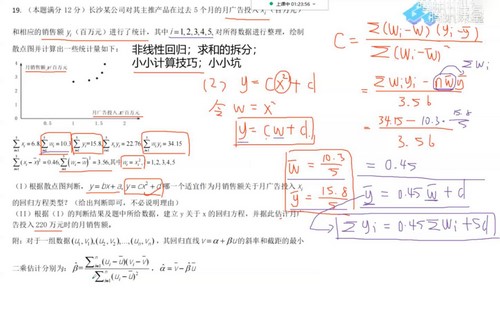 19.（本题满分 12 分）长沙某公司对其主推产品在过去 5 个月的月广告投入 xᵢ（百万元）
和相应的销售额 yᵢ（百万元）进行了统计，其中 i=1,2,3,4,5, 对所得数据进行整理，绘制
散点图并计算出一些统计量如下：
非线性回归；求和的拆分；
小小计算技巧；小小坑
月销售额 y/百万元
月广告投入 x/百万元
0.5 1 1.5 2
∑xᵢ=6.8, ∑wᵢ=10.3, ∑yᵢ=15.8, ∑xᵢyᵢ=22.76, ∑wᵢyᵢ=34.15
∑(xᵢ-x̄)²=0.46, ∑(wᵢ-w̄)²=3.56, 其中 wᵢ=xᵢ², i=1,2,3,4,5
（I）根据散点图判断，y=bx+a, y=cx²+d 哪一个适宜作为月销售额关于月广告投入 xᵢ
的回归方程类型？（给出判断即可，不必说明理由）
（II）根据（I）的判断结果及题中所给数据，建立 y 关于 x 的回归方程，并据此估计月广
告投入 220 万元时的月销售额.
附：对于一组数据(u₁,v₁),(u₂,v₂),…,(uₙ,vₙ)，其回归直线 v=α+βu 的斜率和截距的最小
二乘估计分别为：β̂=∑(uᵢ-ū)(vᵢ-v̄)/∑(uᵢ-ū)²，α̂=v̄-β̂ū
(2) y=cx²+d
令 w=x²
y=cw+d
w̄=10.3/5
ȳ=15.8/5
C=∑(wᵢ-w̄)(yᵢ-ȳ)/∑(wᵢ-w̄)²
=∑wᵢyᵢ-nw̄ȳ/3.56
=34.15-10.3·15.8/5/3.56
=0.45
ȳ=0.45w̄+d
∑yᵢ=0.45∑wᵢ+5d